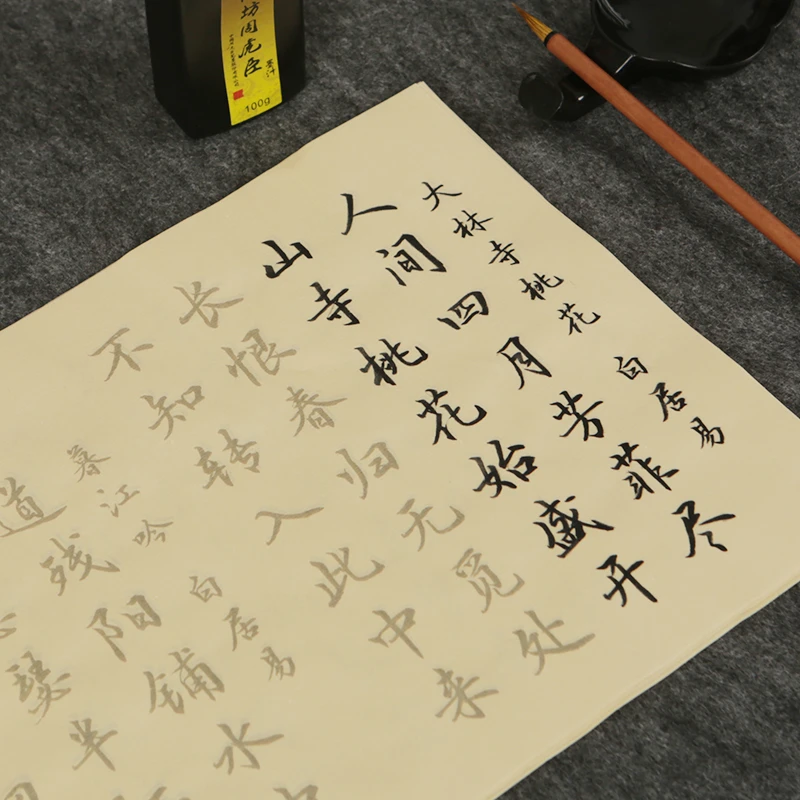 大林寺桃花 白居易
人间四月芳菲尽
山寺桃花始盛开
长恨春归无觅处
不知转入此中来
暮江吟 白居易
道残阳铺水中
瑟半
坊周虎臣
墨汁
100g